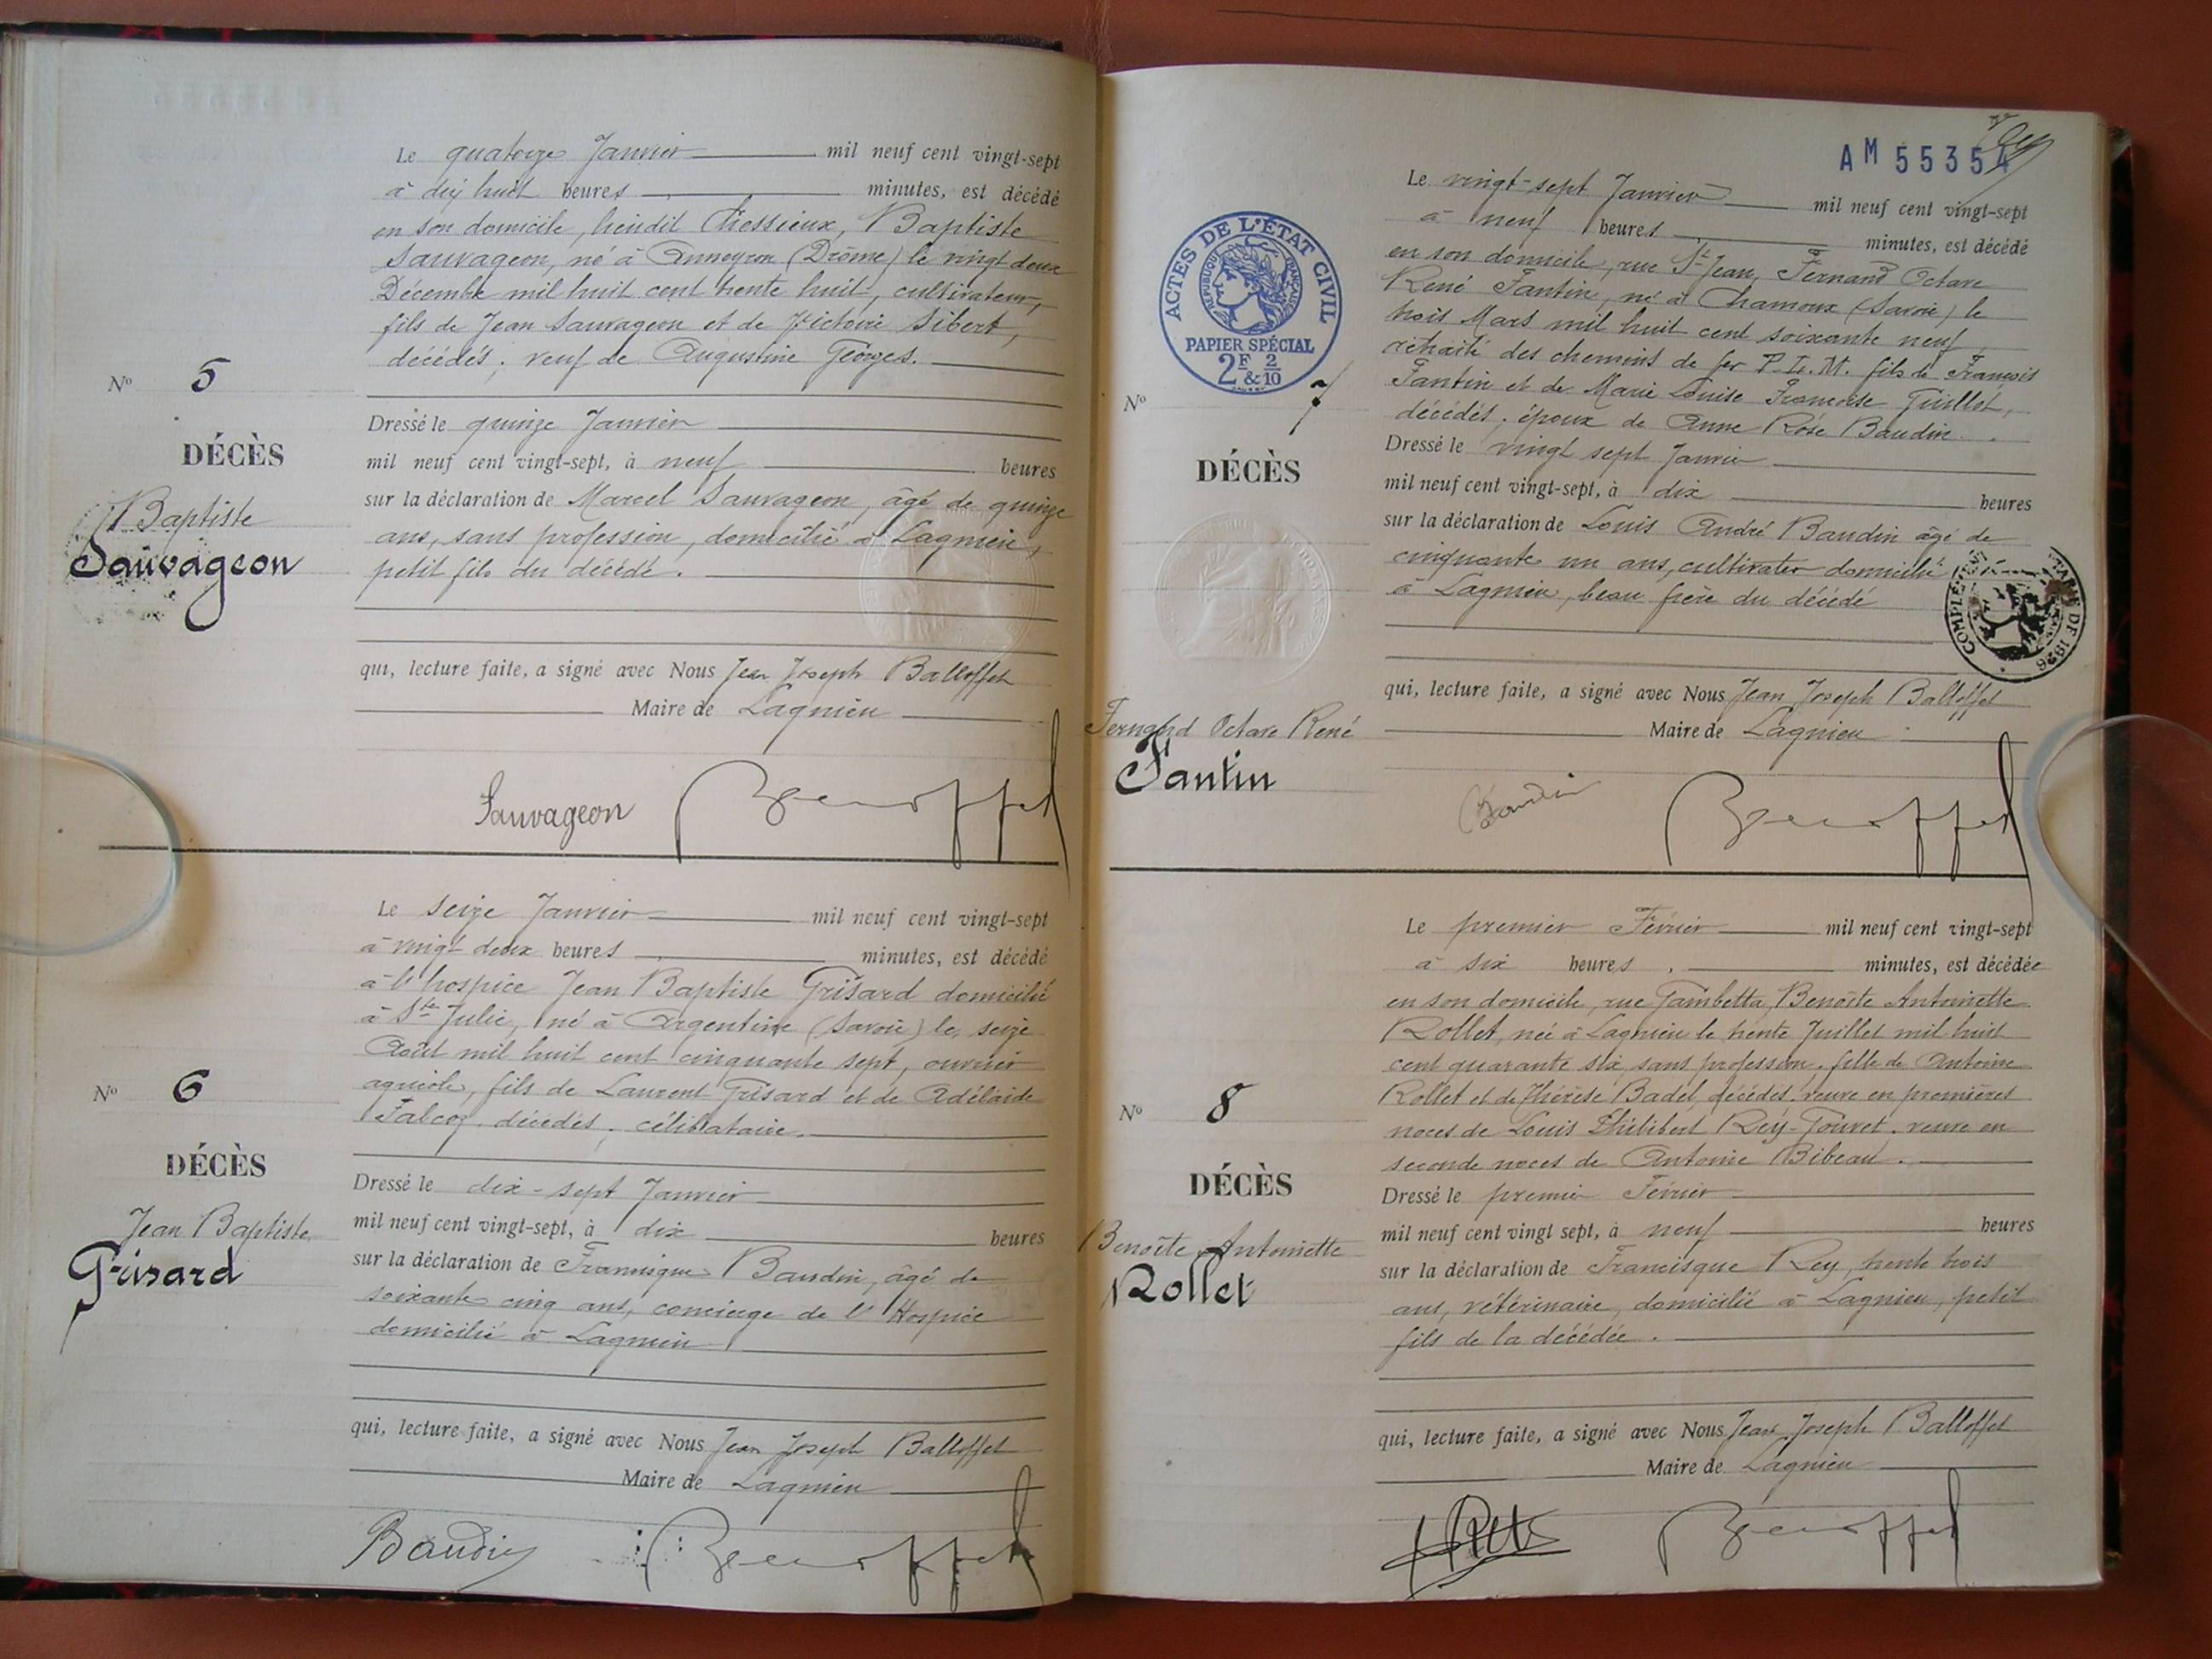 Le quatorze Janvier mil neuf cent vingt-sept
à dix huit heures minutes, est décédé
en son domicile, lieudit Chessieux, Baptiste
Sauvageon, né à Anneyron (Drôme) le vingt deux
Décembre mil huit cent trente huit, cultivateur,
fils de Jean Sauvageon et de Victoire Sibert,
décédés; veuf de Augustine Georges.
N° 5
DÉCÈS
Baptiste
Sauvageon
Dressé le quinze Janvier
mil neuf cent vingt-sept, à neuf heures
sur la déclaration de Marcel Sauvageon, âgé de quinze
ans, sans profession, domicilié à Lagnieu,
petit fils du décédé.
qui, lecture faite, a signé avec Nous Jean Joseph Balloffet
Maire de Lagnieu
Sauvageon Balloffet
Le seize Janvier mil neuf cent vingt-sept
à vingt deux heures minutes, est décédé
à l'hospice Jean Baptiste Grisard domicilié
à Ste Julie, né à Argentine (Savoie) le seize
Août mil huit cent cinquante sept, ouvrier
agricole, fils de Laurent Grisard et de Adélaide
Falcoz, décédés; célibataire.
N° 6
DÉCÈS
Jean Baptiste
Grisard
Dressé le dix-sept Janvier
mil neuf cent vingt-sept, à dix heures
sur la déclaration de Francisque Baudin, âgé de
soixante cinq ans, concierge de l'Hospice
domicilié à Lagnieu
qui, lecture faite, a signé avec Nous Jean Joseph Balloffet
Maire de Lagnieu
Baudin Balloffet
AM 55354
ACTES DE L'ÉTAT CIVIL
RÉPUBLIQUE FRANÇAISE
PAPIER SPÉCIAL
2F & 2/10
Le vingt-sept Janvier mil neuf cent vingt-sept
à neuf heures minutes, est décédé
en son domicile, rue St Jean, Fernand Octave
René Fantin, né à Chamoux (Savoie) le
trois Mars mil huit cent soixante neuf,
retraité des chemins de fer P.L.M. fils de François
Fantin et de Marie Louise Françoise Guillot,
décédés; époux de Anne Rose Baudin.
N° 7
DÉCÈS
Fernand Octave René
Fantin
Dressé le vingt sept Janvier
mil neuf cent vingt-sept, à dix heures
sur la déclaration de Louis André Baudin âgé de
cinquante un ans, cultivater domicilié
à Lagnieu, beau frère du décédé
COMPLÉMENT DE 1926
qui, lecture faite, a signé avec Nous Jean Joseph Balloffet
Maire de Lagnieu
Baudin Balloffet
Le premier Février mil neuf cent vingt-sept
à six heures minutes, est décédée
en son domicile, rue Gambetta, Benoîte Antoinette
Rollet, née à Lagnieu le trente Juillet mil huit
cent quarante six, sans profession, fille de Antoine
Rollet et de Thérèse Badel, décédés, veuve en premières
noces de Louis Philibert Rey-Gouvet, veuve en
seconde noces de Antoine Bibeau.
N° 8
DÉCÈS
Benoîte Antoinette
Rollet
Dressé le premier Février
mil neuf cent vingt sept, à neuf heures
sur la déclaration de Francisque Rey, trente trois
ans, vétérinaire, domicilié à Lagnieu, petit
fils de la décédée.
qui, lecture faite, a signé avec Nous Jean Joseph Balloffet
Maire de Lagnieu
Balloffet